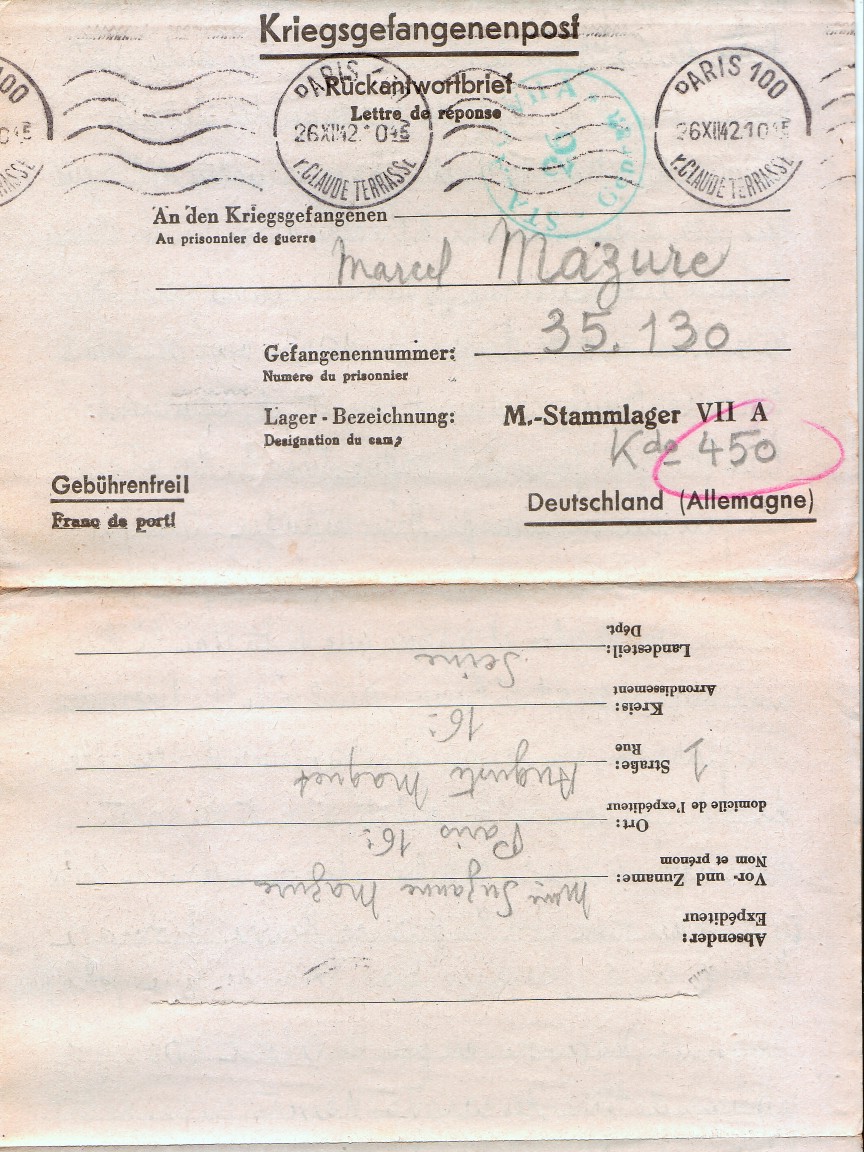 Kriegsgefangenenpost
Rückantwortbrief
Lettre de réponse
PARIS
26XII42 1045
R. CLAUDE TERRASSE
STALAG VII A
26
Geprüft
PARIS 100
26XII42 1045
R. CLAUDE TERRASSE
An den Kriegsgefangenen
Au prisonnier de guerre
Marcel Mazure
35.130
Gefangenennummer:
Numéro du prisonnier
Lager-Bezeichnung: M.-Stammlager VII A
Désignation du camp
Kdo 450
Gebührenfrei!
Franc de port!
Deutschland (Allemagne)
Absender:
Expéditeur
Vor- und Zuname: Mme Suzanne Mazure
Nom et prénom
Ort: Paris 16e
domicile de l'expéditeur
Straße: 1 Auguste Maquet
Rue
Kreis: 16e
Arrondissement
Landesteil: Seine
Dépt.